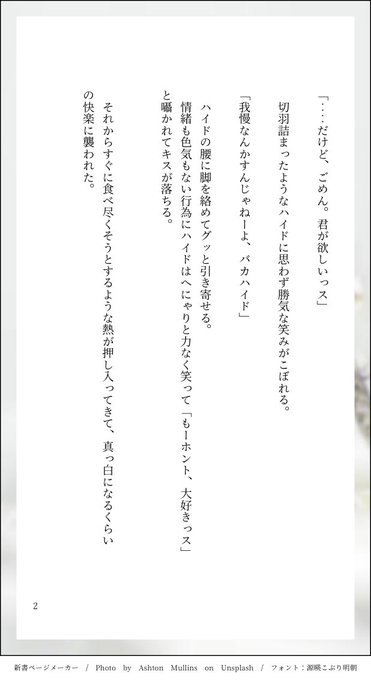 「‥‥だけど、ごめん。君が欲しいっス」
切羽詰まったようなハイドに思わず勝気な笑みがこぼれる。
「我慢なんかすんじゃねーよ、バカハイド」
ハイドの腰に脚を絡めてグッと引き寄せる。
情緒も色気もない行為にハイドはへにゃりと力なく笑って「もーホント、大好きっス」
と囁かれてキスが落ちる。
それからすぐに食べ尽くそうとするような熱が押し入ってきて、真っ白になるくらい
の快楽に襲われた。
2
新書ページメーカー / Photo by Ashton Mullins on Unsplash / フォント：源暎こぶり明朝